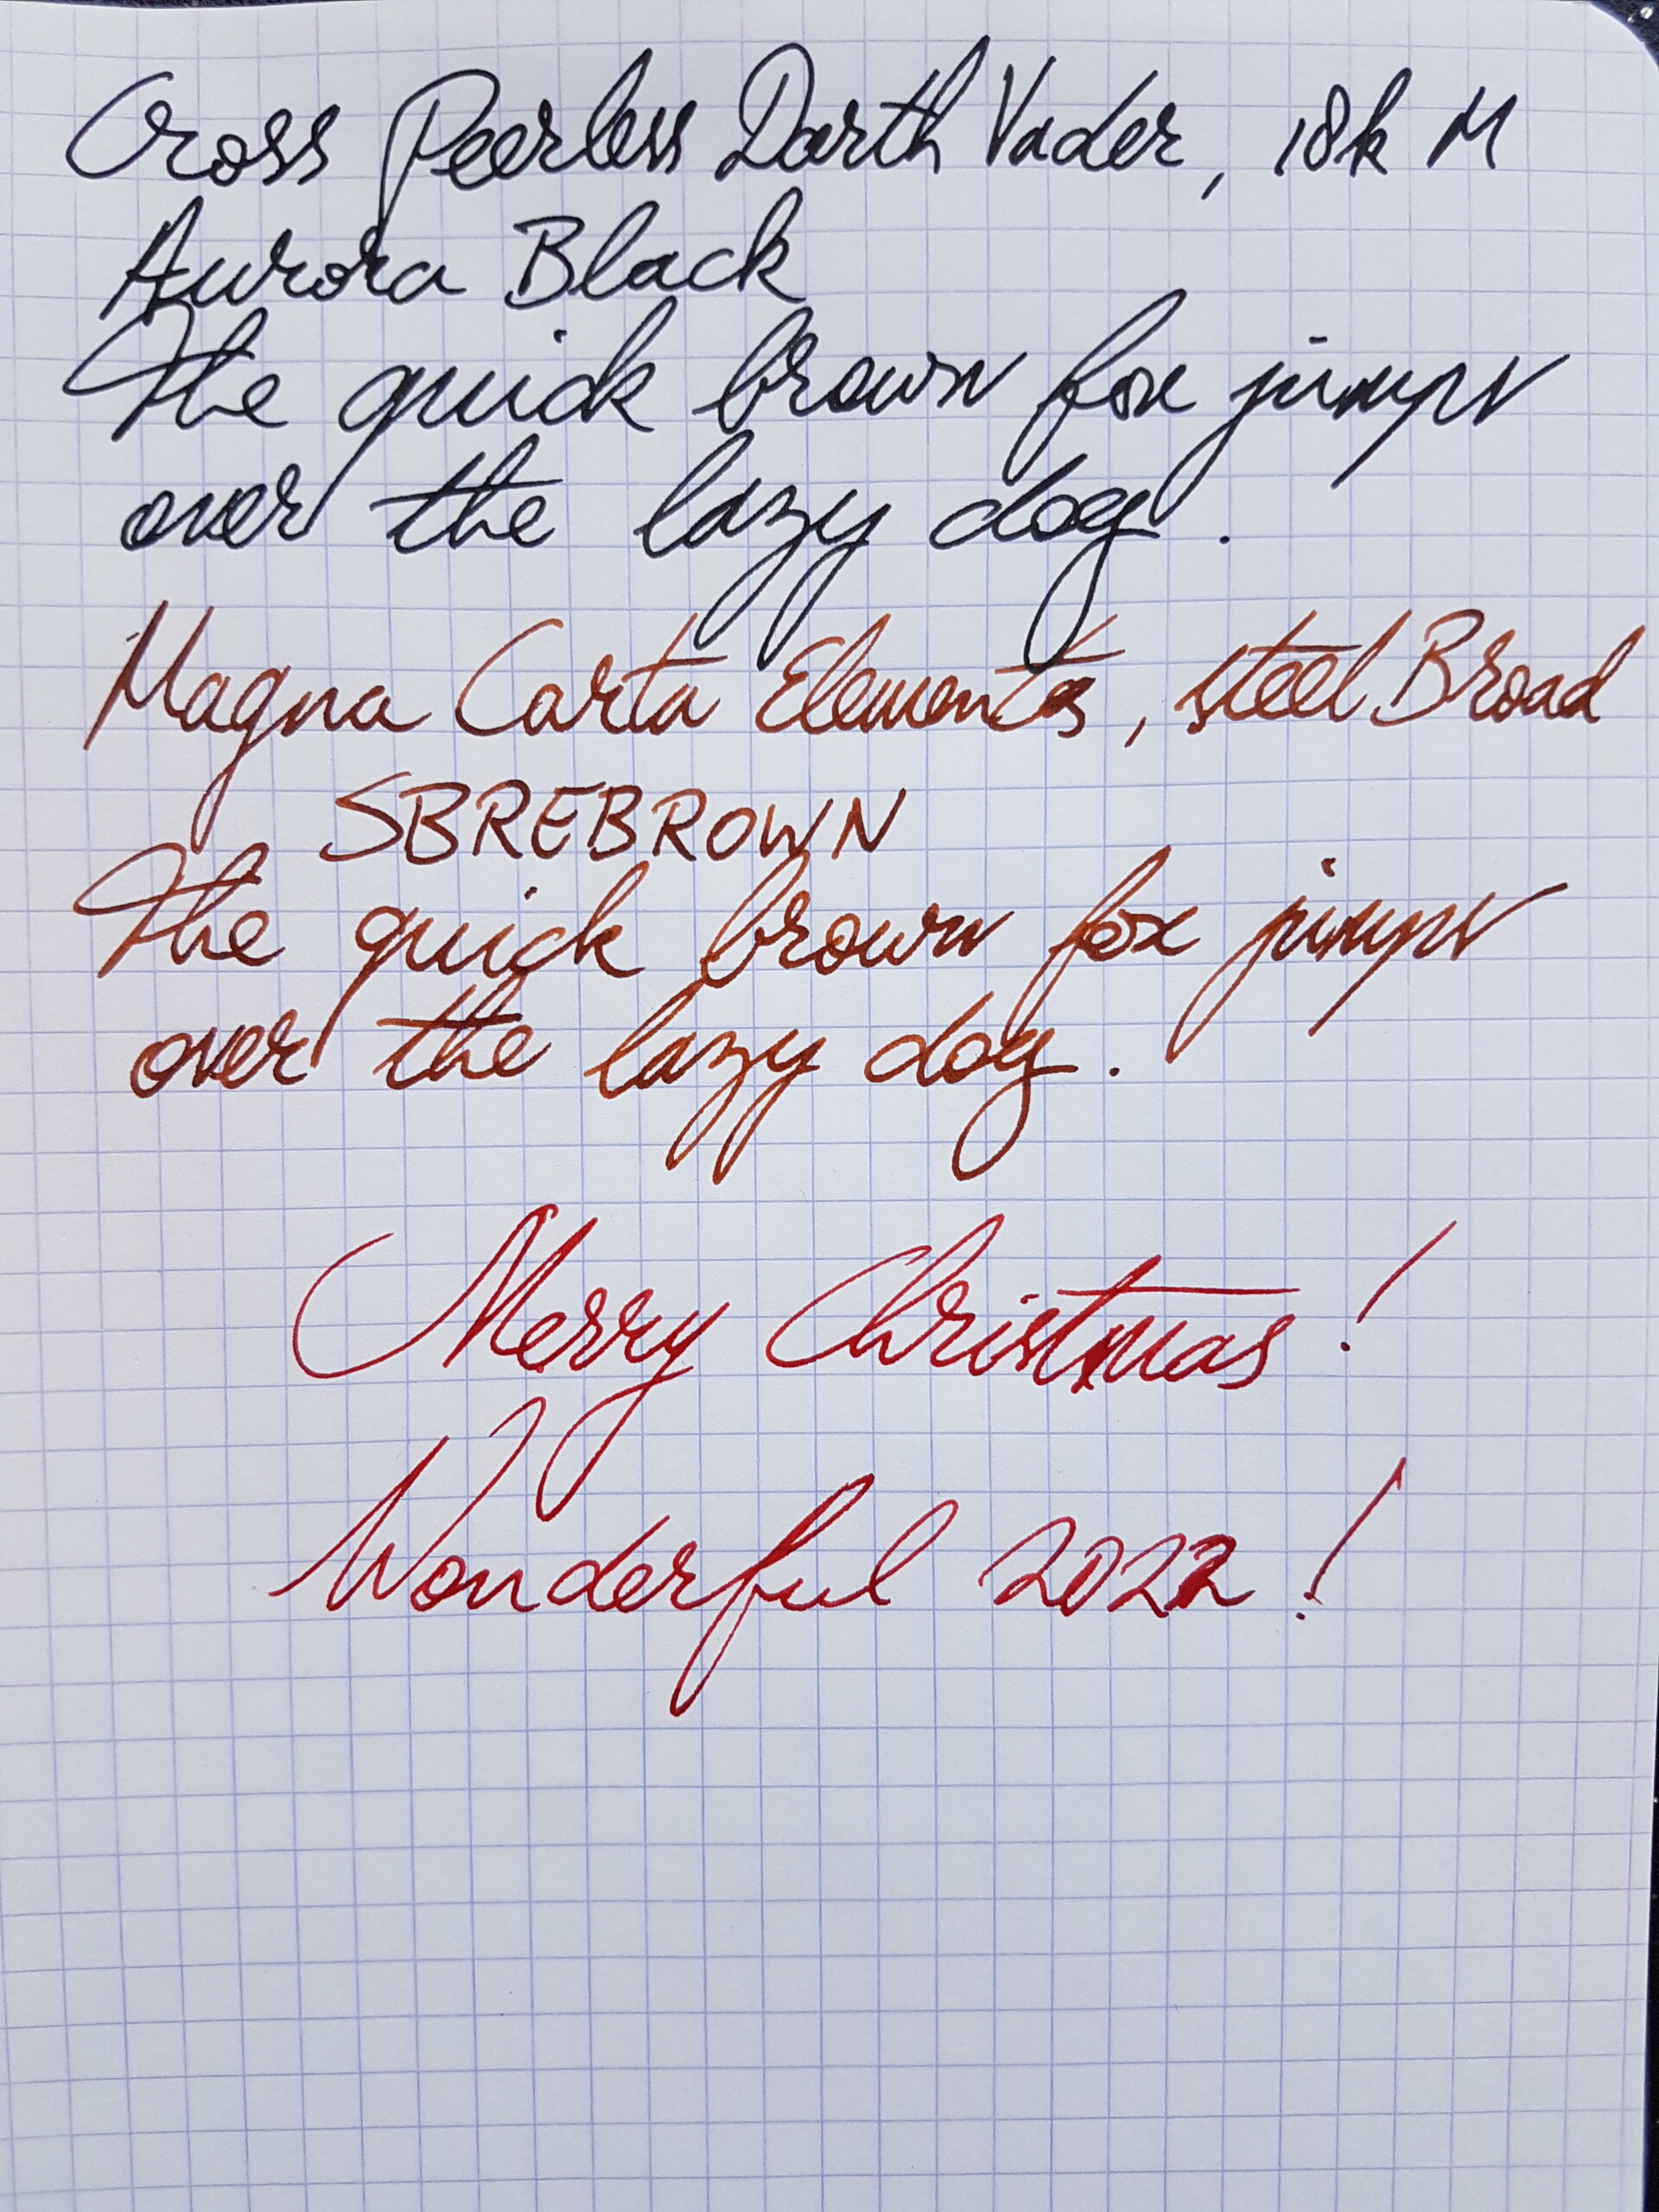 Cross Peerless Darth Vader, 18k M
Aurora Black
The quick brown fox jumps
over the lazy dog.
Magna Carta Elements, steel Broad
SBREBROWN
The quick brown fox jumps
over the lazy dog.
Merry Christmas!
Wonderful 2022!